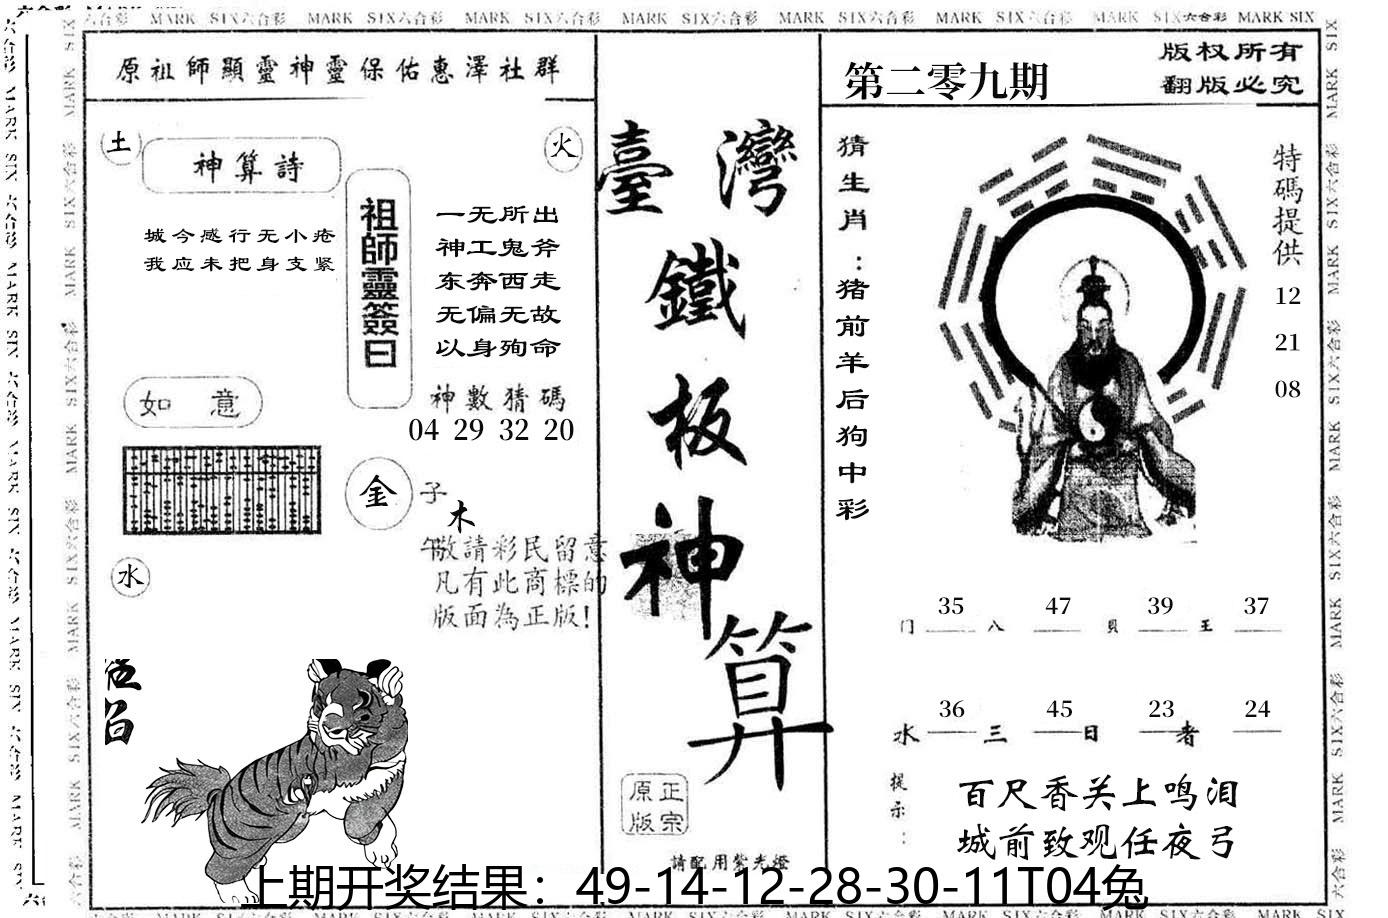 MARK SIX六合彩 MARK SIX六合彩 MARK SIX六合彩 MARK SIX六合彩 MARK SIX六合彩 MARK SIX六合彩 MARK SIX六合彩 MARK SIX
原祖師顯靈神靈保佑惠澤社群
土
神算詩
火
城今感行无小疮
我应未把身支紧
祖師靈簽曰
一无所出
神工鬼斧
东奔西走
无偏无故
以身殉命
神數猜碼
04 29 32 20
如意
金
子
木
午
水
敬請彩民留意
凡有此商標的
版面為正版!
臺灣
鐵
板
神
算
正宗
原版
請配用紫光燈
第二零九期
版权所有
翻版必究
猜生肖:猪前羊后狗中彩
特碼提供
12
21
08
35 47 39 37
门 八 貝 王
36 45 23 24
水 三 日 者
提示:
百尺香关上鸣泪
城前致观任夜弓
上期开奖结果：49-14-12-28-30-11T04兔